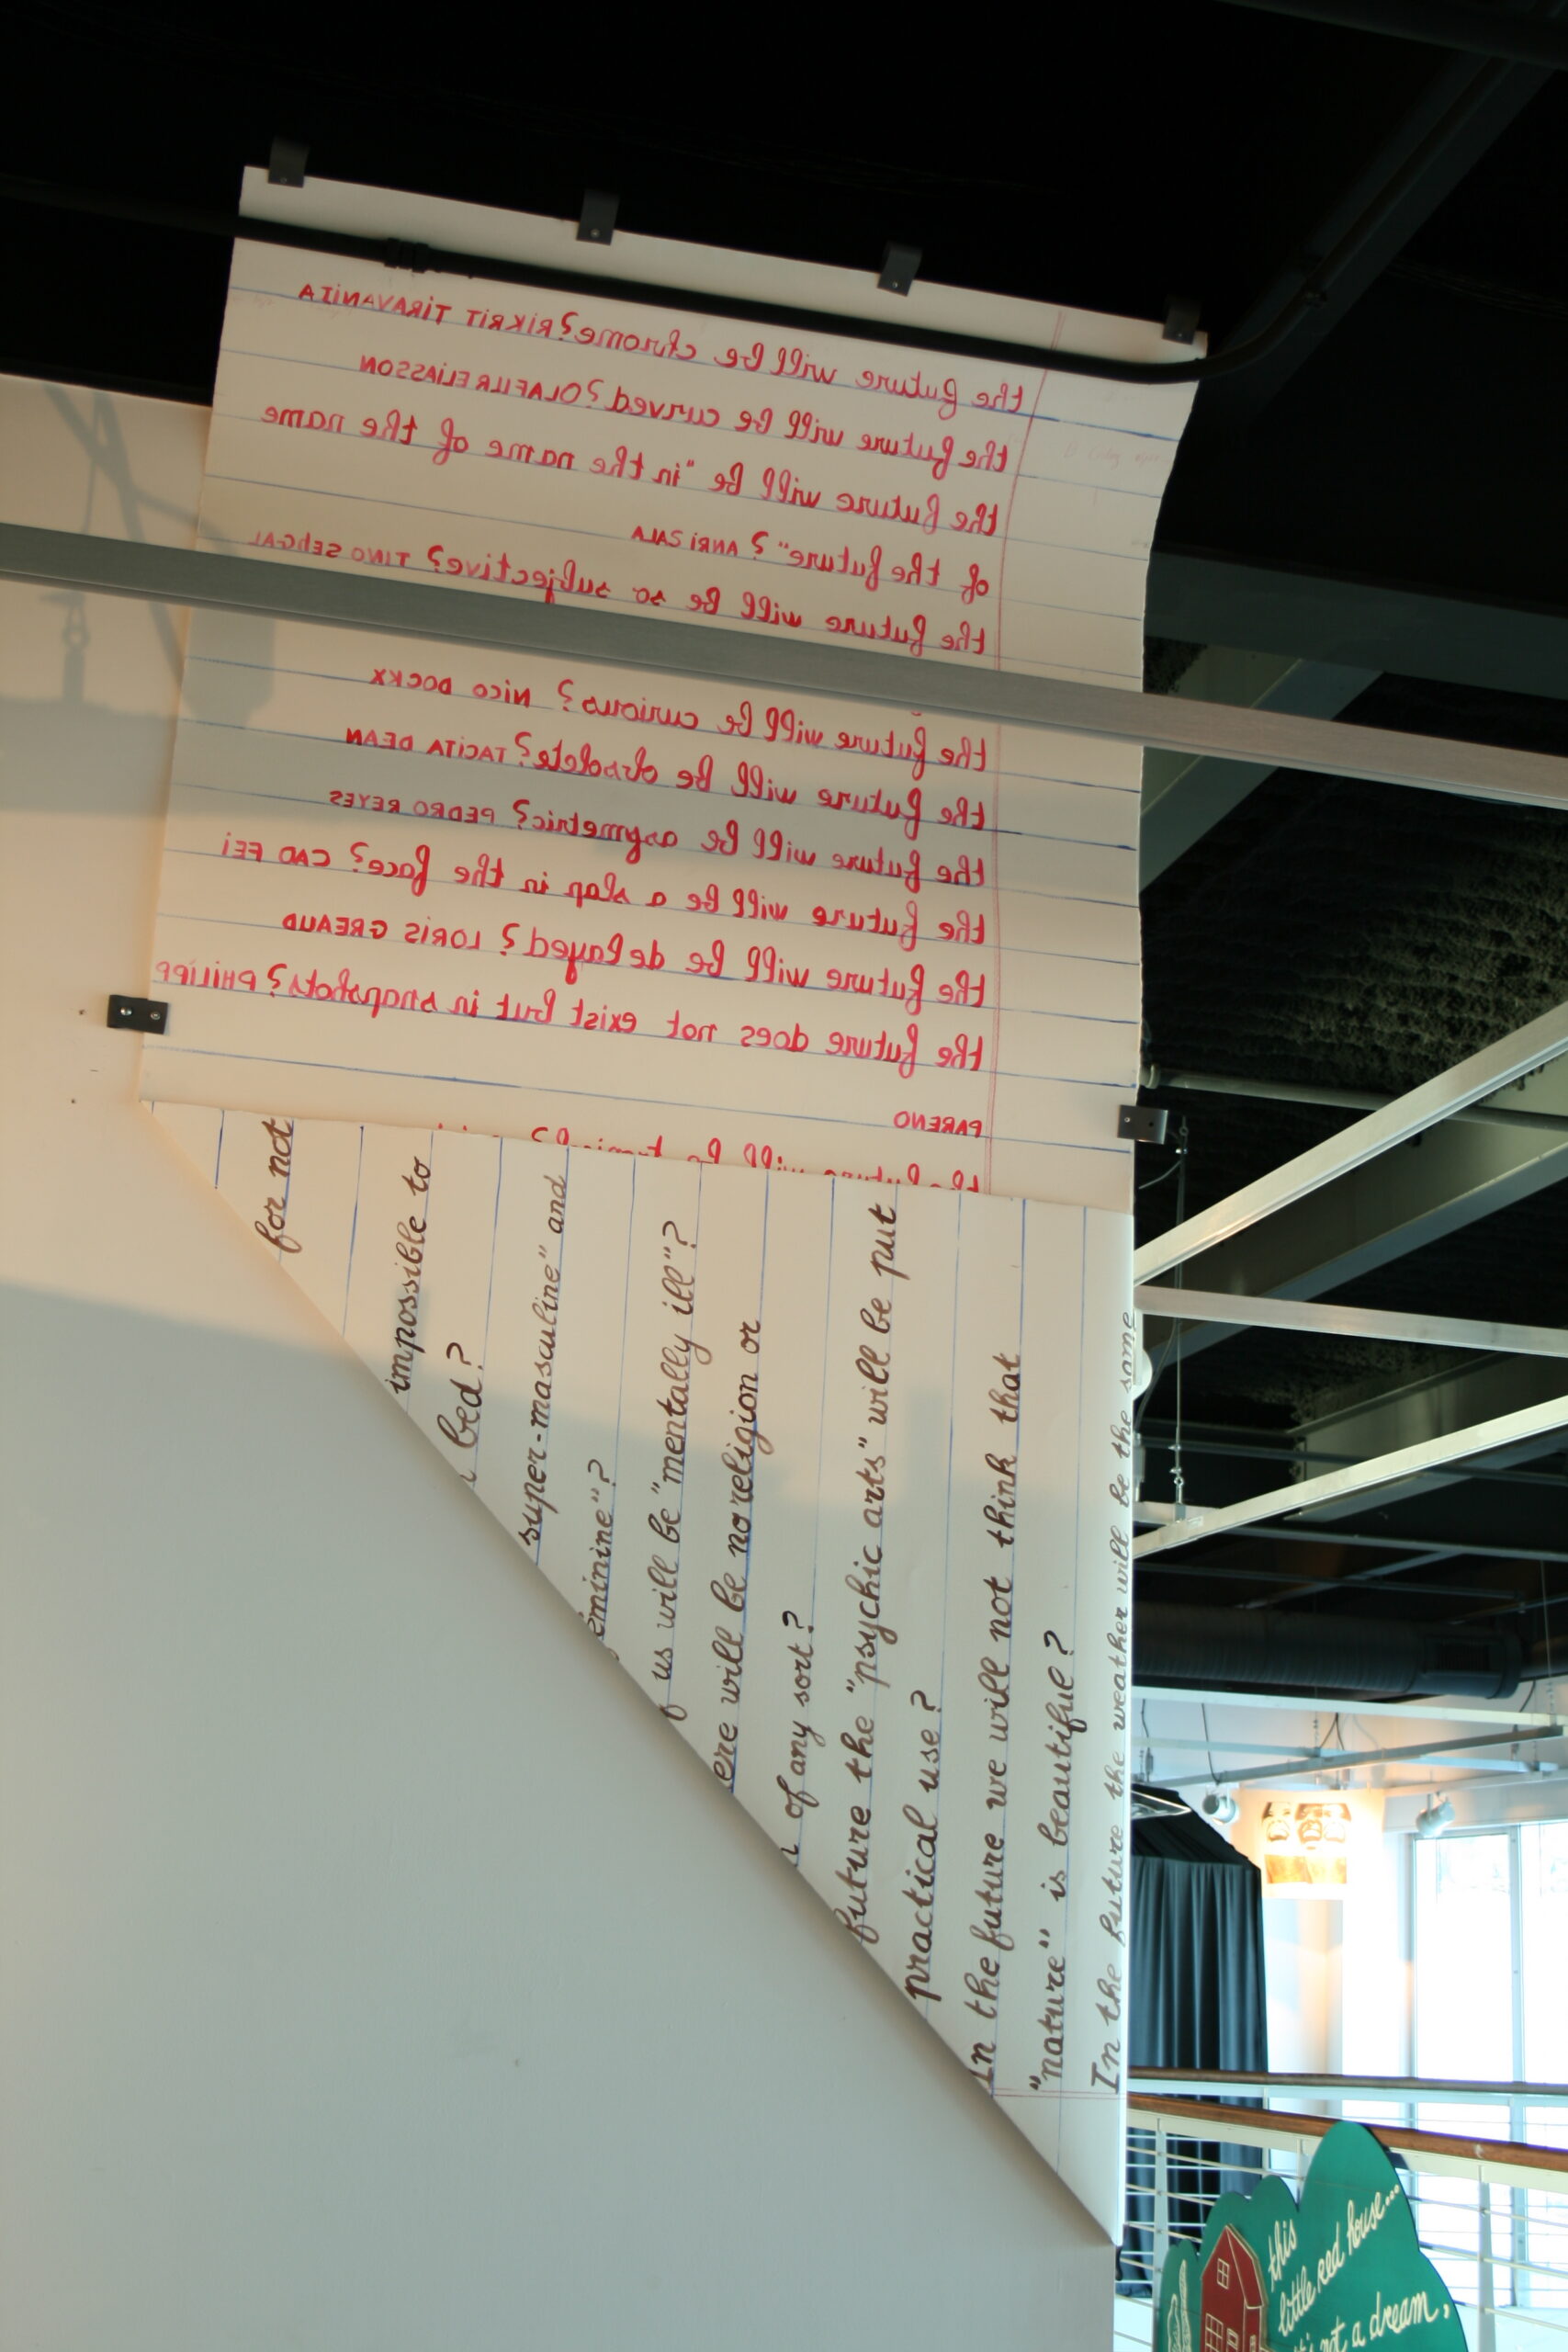 the future will be chrome? RiKRiT TiRAVANiJA
the future will be curved? OLAFUR ELiASSON
the future will be "in the name of the name
of the future"? ANRi SALA
the future will be so subjective? TiNO SEhGAL
the future will be curious? NiCO DOCKX
the future will be obsolete? TACiTA DEAN
the future will be asymetric? PEDRO REYES
the future will be a slap in the face? CAO FEi
the future will be delayed? LORiS GREAUD
the future does not exist but in snapshots? PHiLiPP
PARENO
the future will be
for not
impossible to
bed?
super-masculine" and
eminine"?
us will be "mentally ill"?
ere will be no religion or
of any sort?
future the "psychic arts" will be put
practical use?
In the future we will not think that
"nature" is beautiful?
In the future the weather will be the same
this
little red house...
not a dream,